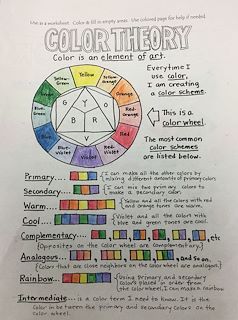 Use as a worksheet. Color & fill in empty areas. Use colored page for help if needed.
COLOR THEORY
Color is an element of art.
Everytime I
use color,
I am creating
a color scheme.
Yellow
Yellow-Green
Yellow-Orange
Green
Orange
Blue-Green
Red-Orange
Blue
Red
Blue-Violet
Red-Violet
Violet
G Y O
B R
V
This is a
color wheel.
The most common
color schemes
are listed below.
Primary.... I can make all the other colors by
mixing different amounts of primary colors.
Secondary.... I can mix two primary colors to
make a secondary color.
Warm.... Yellow and all the colors with red
and orange tones are warm.
Cool.... Violet and all the colors with
blue and green tones are cool.
Complementary... , , , , etc
(Opposites on the color wheel are complementary.)
Analogous... , , and so on.
(Colors that are close neighbors on the color wheel are analogous.)
Rainbow... Using primary and secondary
colors placed in order from
the color wheel, I can make a rainbow.
Intermediate... is a color term I need to know. It is the
color in between the primary and secondary colors on the
color wheel.